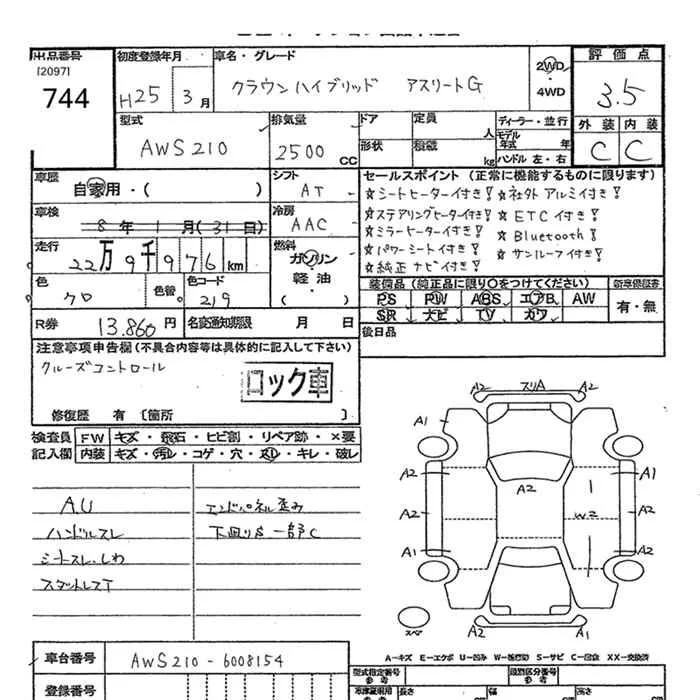 出品番号 初度登録年月 車名・グレード 評価点
[2097]
744 H25年 3月 クラウンハイブリッド アスリートG 2WD・4WD 3.5
外装 内装
C C
型式 排気量 ドア 定員 ディーラー・並行
AWS210 2500 CC 人 モデル年式 年
形状 積載 kg ハンドル 左・右
車歴 シフト セールスポイント (正常に機能するものに限ります)
自家用・( ) AT ☆シートヒーター付き! ☆社外アルミ付き!
車検 冷房 ☆ステアリングヒーター付き! ☆ETC付き!
8年 1月(31日) AAC ☆ミラーヒーター付き! ☆Bluetooth!
走行 燃料 ☆パワーシート付き! ☆サンルーフ付き!
22万9千976km ガソリン・軽油 ☆純正ナビ付き!
色 色替 色コード 装備品 (純正品に限り○をつけてください) 新車保証書
クロ 219 PS PW ABS エアB AW 有・無
R券 13.860円 名変通知期限 月 日 SR ナビ TV カワ
後日品
注意事項申告欄 (不具合内容等は具体的に記入して下さい)
クルーズコントロール
ロック車
修復歴 有 [箇所 ]
検査員 FW キズ・飛石・ヒビ割・リペア跡・×要
記入欄 内装 キズ・汚レ・コゲ・穴・スレ・キレ・破レ
A.U エンドパネル歪み
ハンドルスレ 下回りS一部C
シートスレ・しわ
スタットレスT
A2 スリA A2
A1
A2 A1
A2
A2 W2 A2
A1 A2
スペア A2 A1
A-キズ E-エクボ U-凹み W-補修跡 S-サビ C-腐食 XX-交換済
車台番号 AWS210-6008154
型式指定番号 参考 類別区分番号 参考
登録番号 長さ 幅 高さ